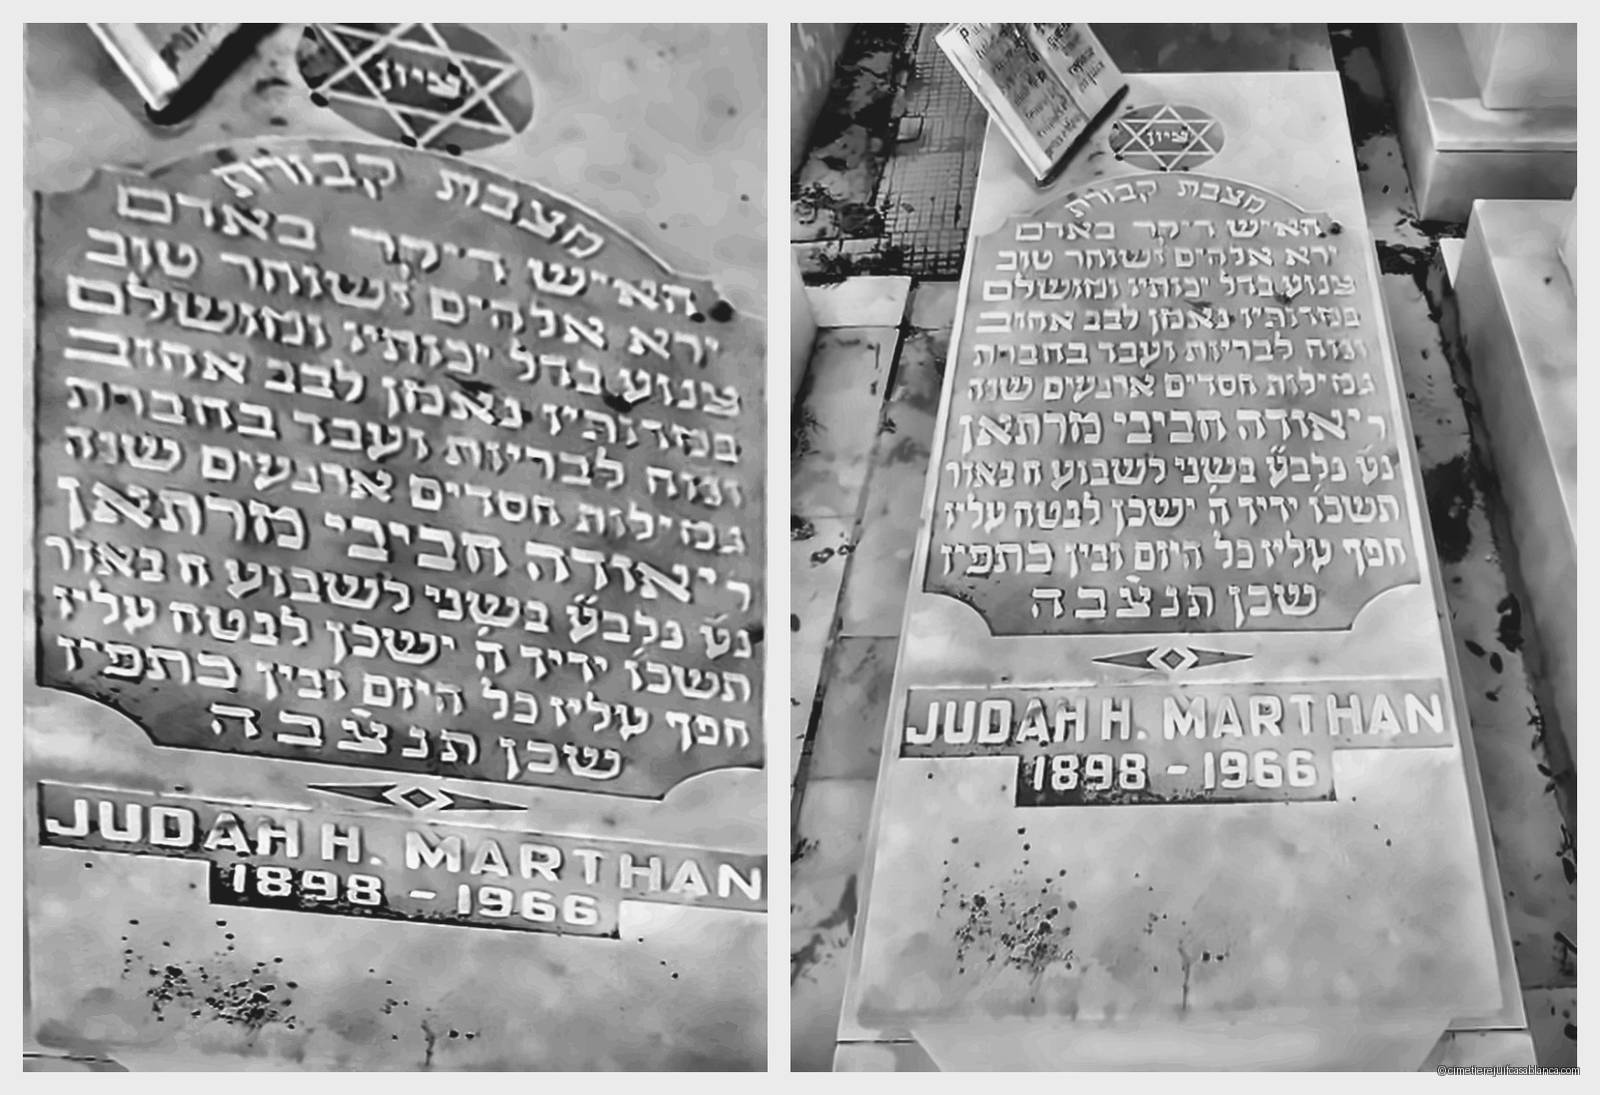 ציון
מצבת קבורת
האיש היקר באדם
ירא אלהים ושוחר טוב
צנוע בכל
ומושלם
במדותיו נאמן לבב אהוב
ונוח לבריות ועבד בחברת
גמילות חסדים ארבעים שנה
ר יאודה חביבי מרתאן
בשני לשבוע ח באדר
ידיד ה ישכן לבטח עליו
חפף עליו כל היום ובין כתפיו
שכן תנצבה
JUDAH H. MARTHAN
1898 - 1966
ציון
מצבת קבורת
האיש היקר באדם
ירא אלהים ושוחר טוב
צנוע בכל
ומושלם
במדותיו נאמן לבב אהוב
ונוח לבריות ועבד בחברת
גמילות חסדים ארבעים שנה
ר יאודה חביבי מרתאן
בשני לשבוע ח באדר
ידיד ה ישכן לבטח עליו
חפף עליו כל היום ובין כתפיו
שכן תנצבה
JUDAH H. MARTHAN
1898 - 1966
©cimetierejuifcasablanca.com